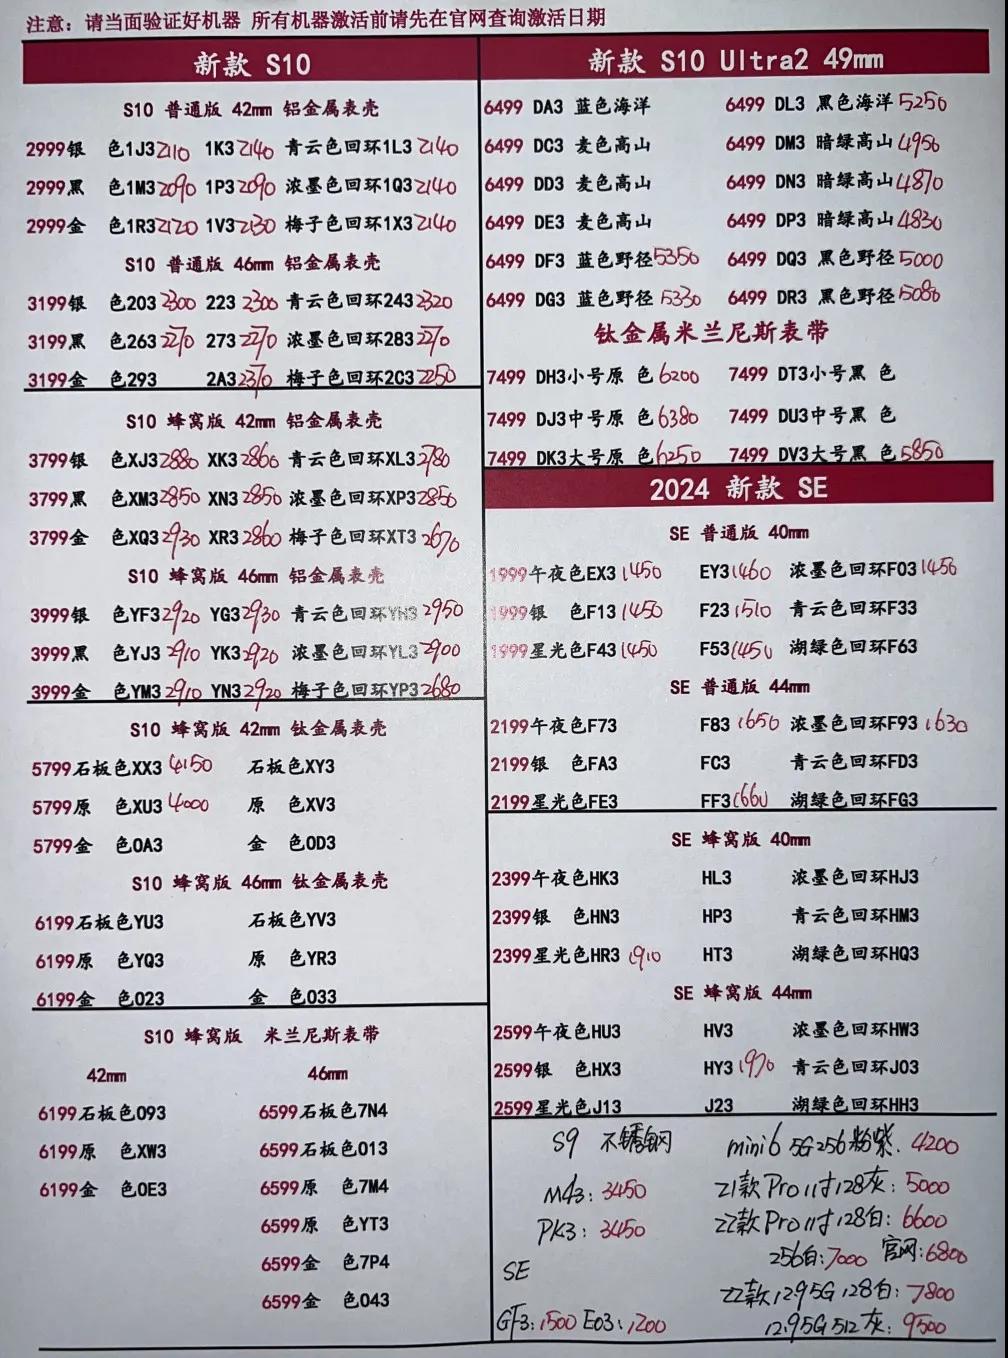 注意：请当面验证好机器 所有机器激活前请先在官网查询激活日期
新款 S10
S10 普通版 42mm 铝金属表壳
2999银 色1J3 2110 1K3 2140 青云色回环1L3 2140
2999黑 色1M3 2090 1P3 2090 浓墨色回环1Q3 2140
2999金 色1R3 2120 1V3 2130 梅子色回环1X3 2140
S10 普通版 46mm 铝金属表壳
3199银 色203 2300 223 2300 青云色回环243 2320
3199黑 色263 2270 273 2270 浓墨色回环283 2270
3199金 色293 2A3 2370 梅子色回环2C3 2250
S10 蜂窝版 42mm 铝金属表壳
3799银 色XJ3 2880 XK3 2860 青云色回环XL3 2780
3799黑 色XM3 2850 XN3 2850 浓墨色回环XP3 2850
3799金 色XQ3 2930 XR3 2860 梅子色回环XT3 2670
S10 蜂窝版 46mm 铝金属表壳
3999银 色YF3 2920 YG3 2930 青云色回环YH3 2950
3999黑 色YJ3 2910 YK3 2920 浓墨色回环YL3 2900
3999金 色YM3 2910 YN3 2920 梅子色回环YP3 2680
S10 蜂窝版 42mm 钛金属表壳
5799石板色XX3 4150 石板色XY3
5799原 色XU3 4000 原 色XV3
5799金 色0A3 金 色0D3
S10 蜂窝版 46mm 钛金属表壳
6199石板色YU3 石板色YV3
6199原 色YQ3 原 色YR3
6199金 色023 金 色033
S10 蜂窝版 米兰尼斯表带
42mm 46mm
6199石板色093 6599石板色7N4
6199原 色XW3 6599石板色013
6199金 色0E3 6599原 色7M4
6599原 色YT3
6599金 色7P4
6599金 色043
新款 S10 Ultra2 49mm
6499 DA3 蓝色海洋 6499 DL3 黑色海洋 5250
6499 DC3 麦色高山 6499 DM3 暗绿高山 4950
6499 DD3 麦色高山 6499 DN3 暗绿高山 4870
6499 DE3 麦色高山 6499 DP3 暗绿高山 4830
6499 DF3 蓝色野径 5350 6499 DQ3 黑色野径 5000
6499 DG3 蓝色野径 5330 6499 DR3 黑色野径 5080
钛金属米兰尼斯表带
7499 DH3小号原 色 6200 7499 DT3小号黑 色
7499 DJ3中号原 色 6380 7499 DU3中号黑 色
7499 DK3大号原 色 6250 7499 DV3大号黑 色 5850
2024 新款 SE
SE 普通版 40mm
1999午夜色EX3 1450 EY3 1460 浓墨色回环F03 1450
1999银 色F13 1450 F23 1510 青云色回环F33
1999星光色F43 1450 F53 1450 湖绿色回环F63
SE 普通版 44mm
2199午夜色F73 F83 1650 浓墨色回环F93 1630
2199银 色FA3 FC3 青云色回环FD3
2199星光色FE3 FF3 1660 湖绿色回环FG3
SE 蜂窝版 40mm
2399午夜色HK3 HL3 浓墨色回环HJ3
2399银 色HN3 HP3 青云色回环HM3
2399星光色HR3 1910 HT3 湖绿色回环HQ3
SE 蜂窝版 44mm
2599午夜色HU3 HV3 浓墨色回环HW3
2599银 色HX3 HY3 1970 青云色回环J03
2599星光色J13 J23 湖绿色回环HH3
S9 不锈钢
M43：3450
PK3：3450
SE
GF3：1500 E03：1200
mini6 5G256粉紫．4200
21款Pro11寸128灰：5000
22款Pro11寸128白：6600
256白：7000 官网：6800
22款12.95G128白：7800
12.95G512灰：9500